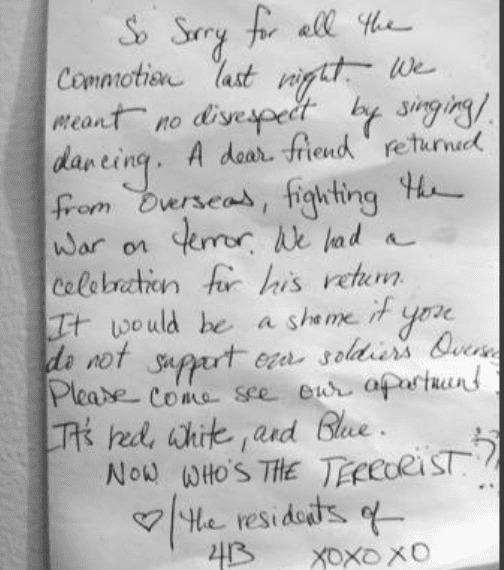 So Sorry for all the
Commotion last night. We
meant no disrespect by singing/
dancing. A dear friend returned
from Overseas, fighting the
War on terror. We had a
celebration for his return.
It would be a shame if you
do not support our soldiers Overseas
Please come see our apartment.
It's red, White, and Blue.
NOW WHO'S THE TERRORIST??
♡/the residents of
4B XOXOXO